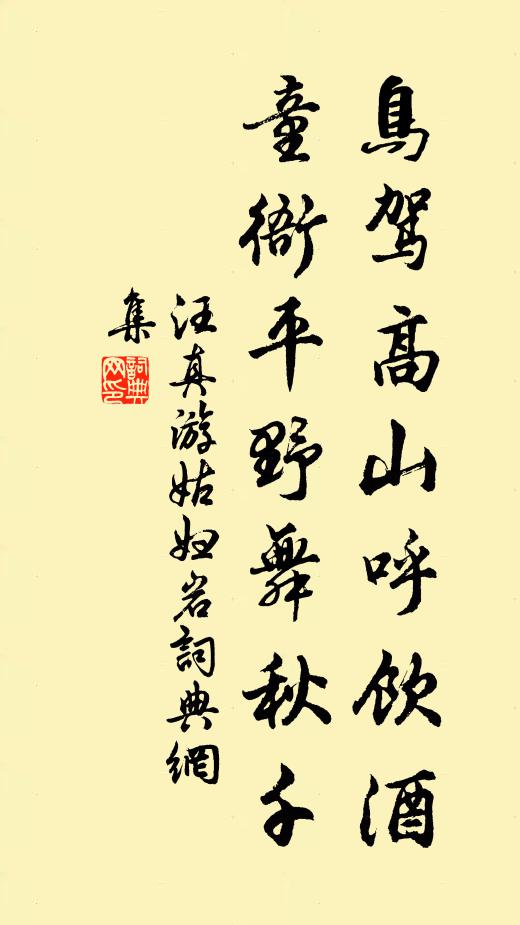 鳥駕高山呼飲酒
童衙平野舞秋千
汪真游姑婦岩詞典網
集
詞典網印